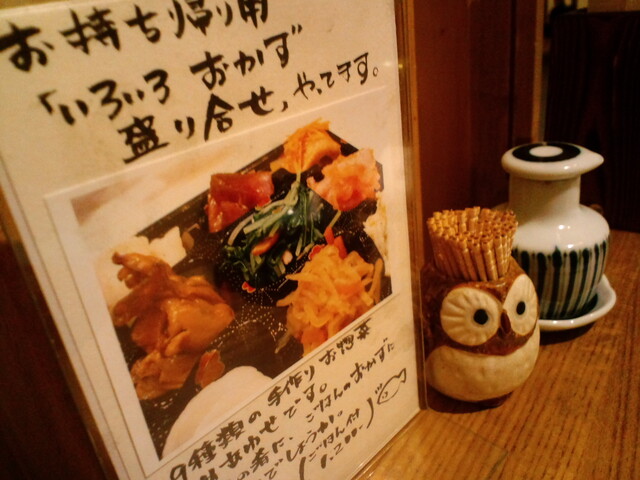 お持ち帰り用
「いろいろ おかず
盛り合せ」やってます。
9種類の手作りお惣菜
合わせです。
の肴に、ごはんのおかずに
でしょうか。
(ごはん付
1,200-)